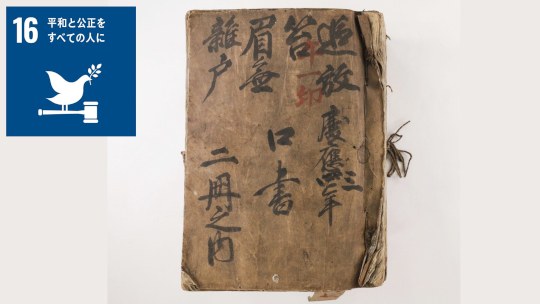 16
平和と公正を
すべての人に
追放
笞
眉無
雜戸
慶應三年
口書
二冊之内